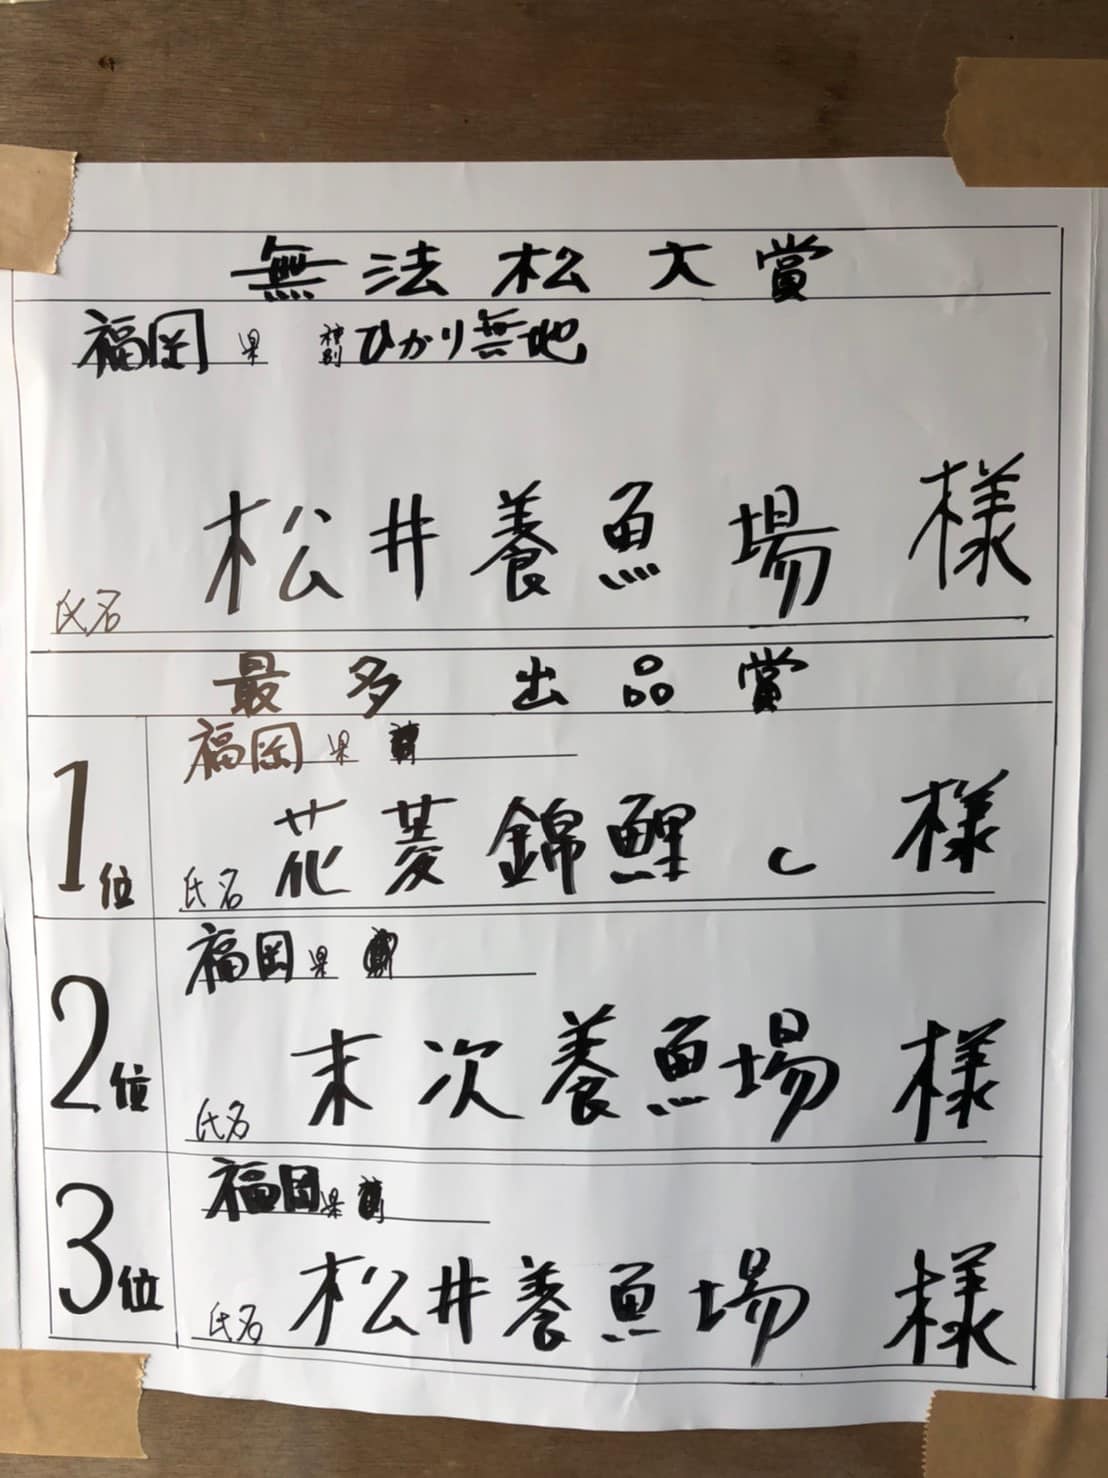 無法松大賞
福岡県 種別 ひかり無地
氏名 松井養魚場 様
最多出品賞
1位 福岡県
氏名 花菱錦鯉し 様
2位 福岡県
氏名 末次養魚場 様
3位 福岡県
氏名 松井養魚場 様